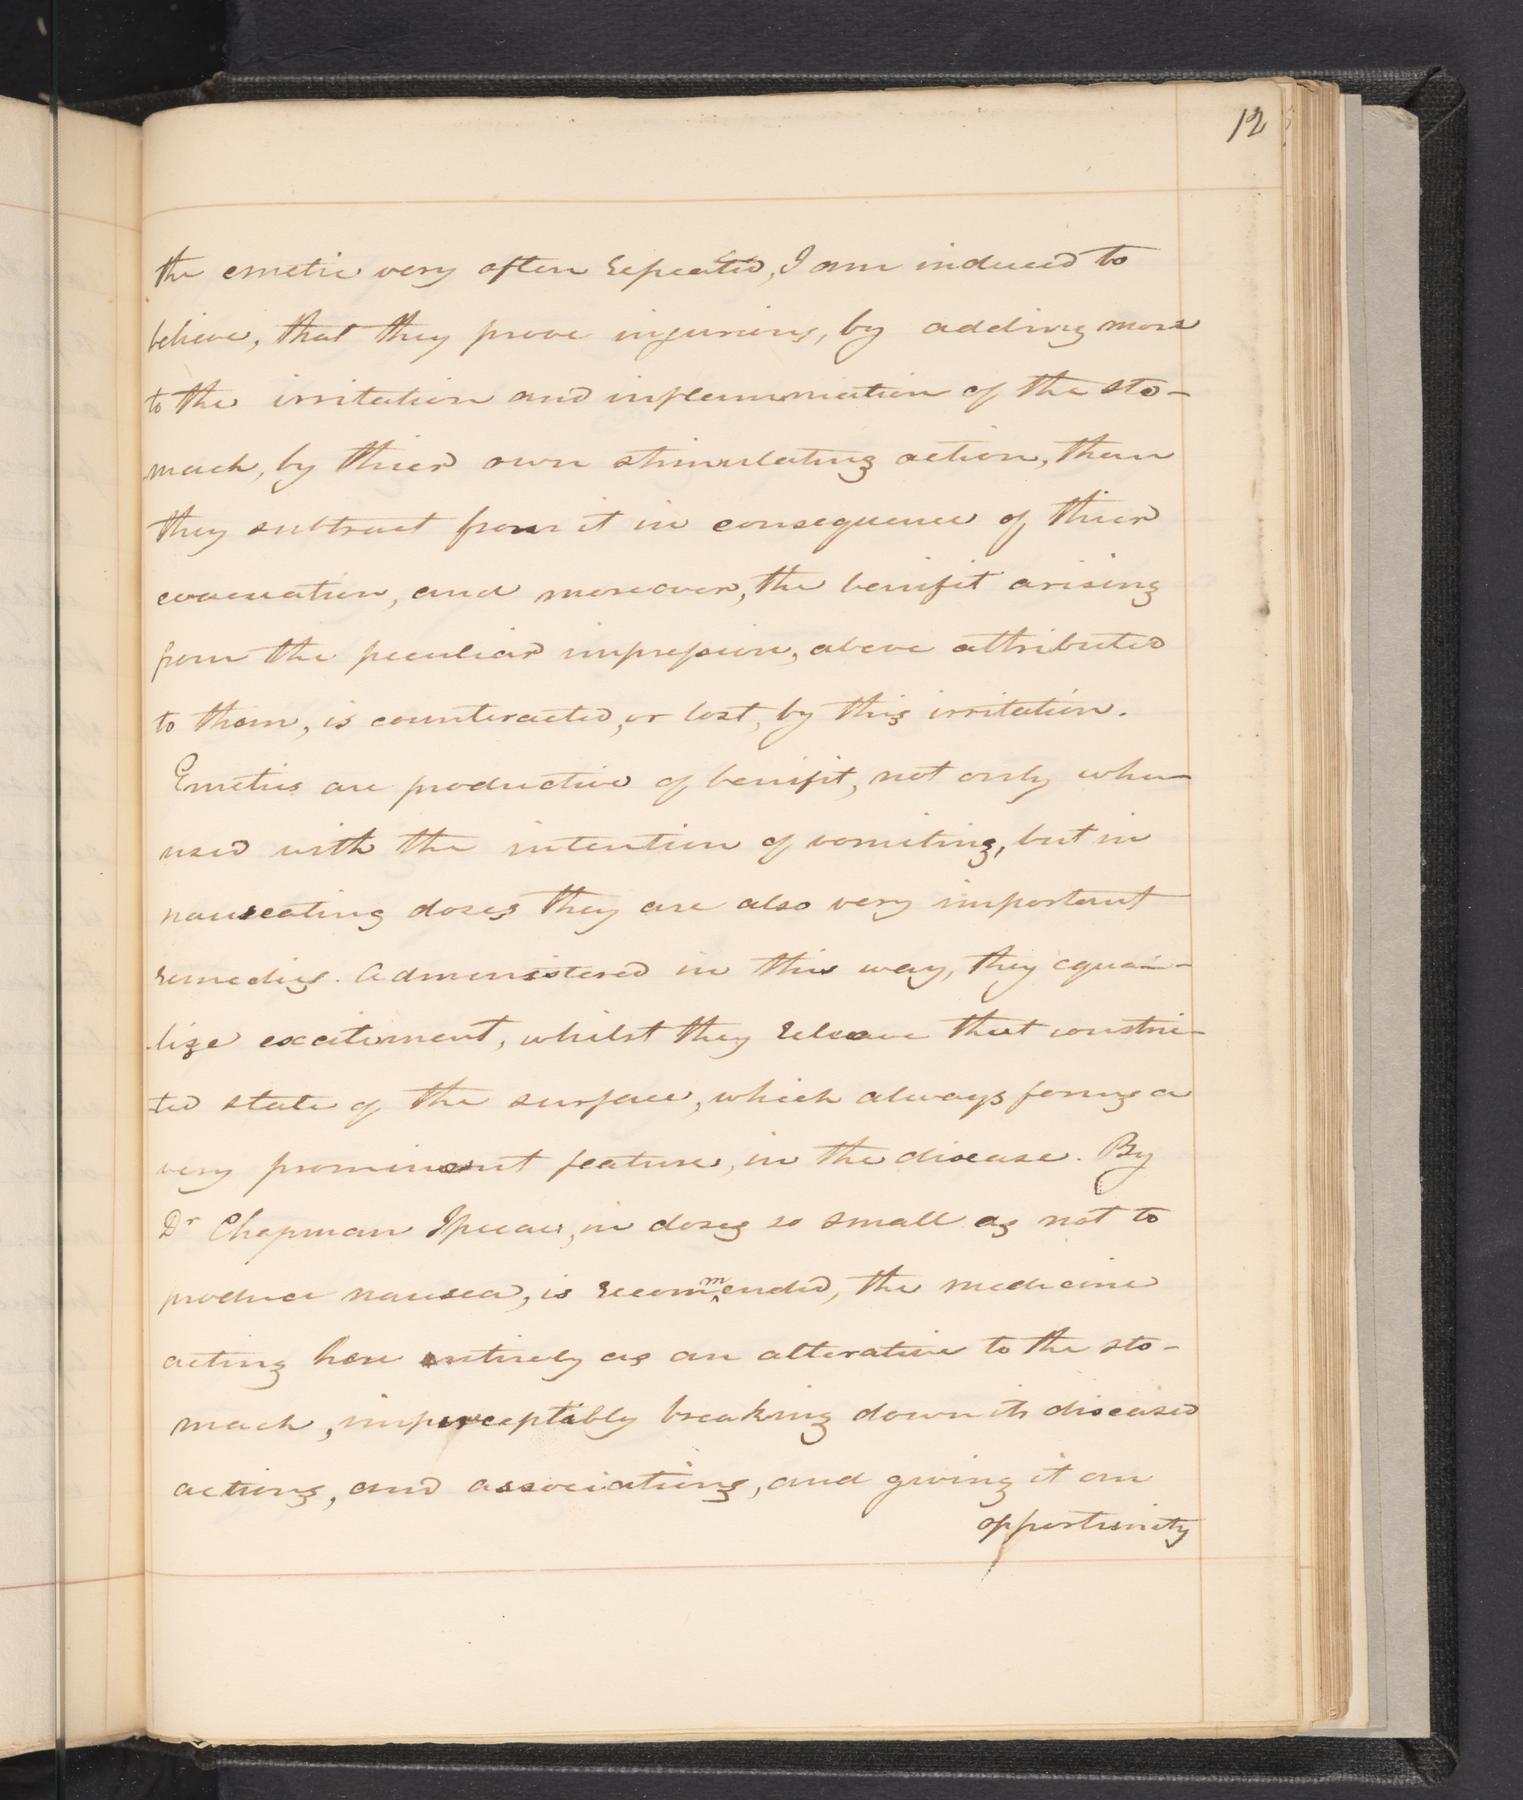 12
the emetic very often repeated, I am induced to
believe, that they prove injurious, by adding more
to the irritation and inflammation of the sto-
mach, by thier own stimulating action, than
they subtract from it in consequence of thier
evacuation, and moreover, the benifit arising
from the peculiar impression, above attributed
to them, is counteracted, or lost, by this irritation.
Emetics are productive of benifit, not only when
used with the intention of vomiting, but in
nauseating doses they are also very important
remedies. Administered in this way, they equa-
lize excitement, whilst they releave that constric-
ted state of the surface, which always forms a
very prominent feature, in the disease. By
Dr Chapman Ipecac, in doses so small as not to
produce nausea, is recommended, the medicine
acting here entirely as an alterative to the sto-
mach, imperceptibly breaking down its diseased
actions, and associations, and giving it an
opportunity